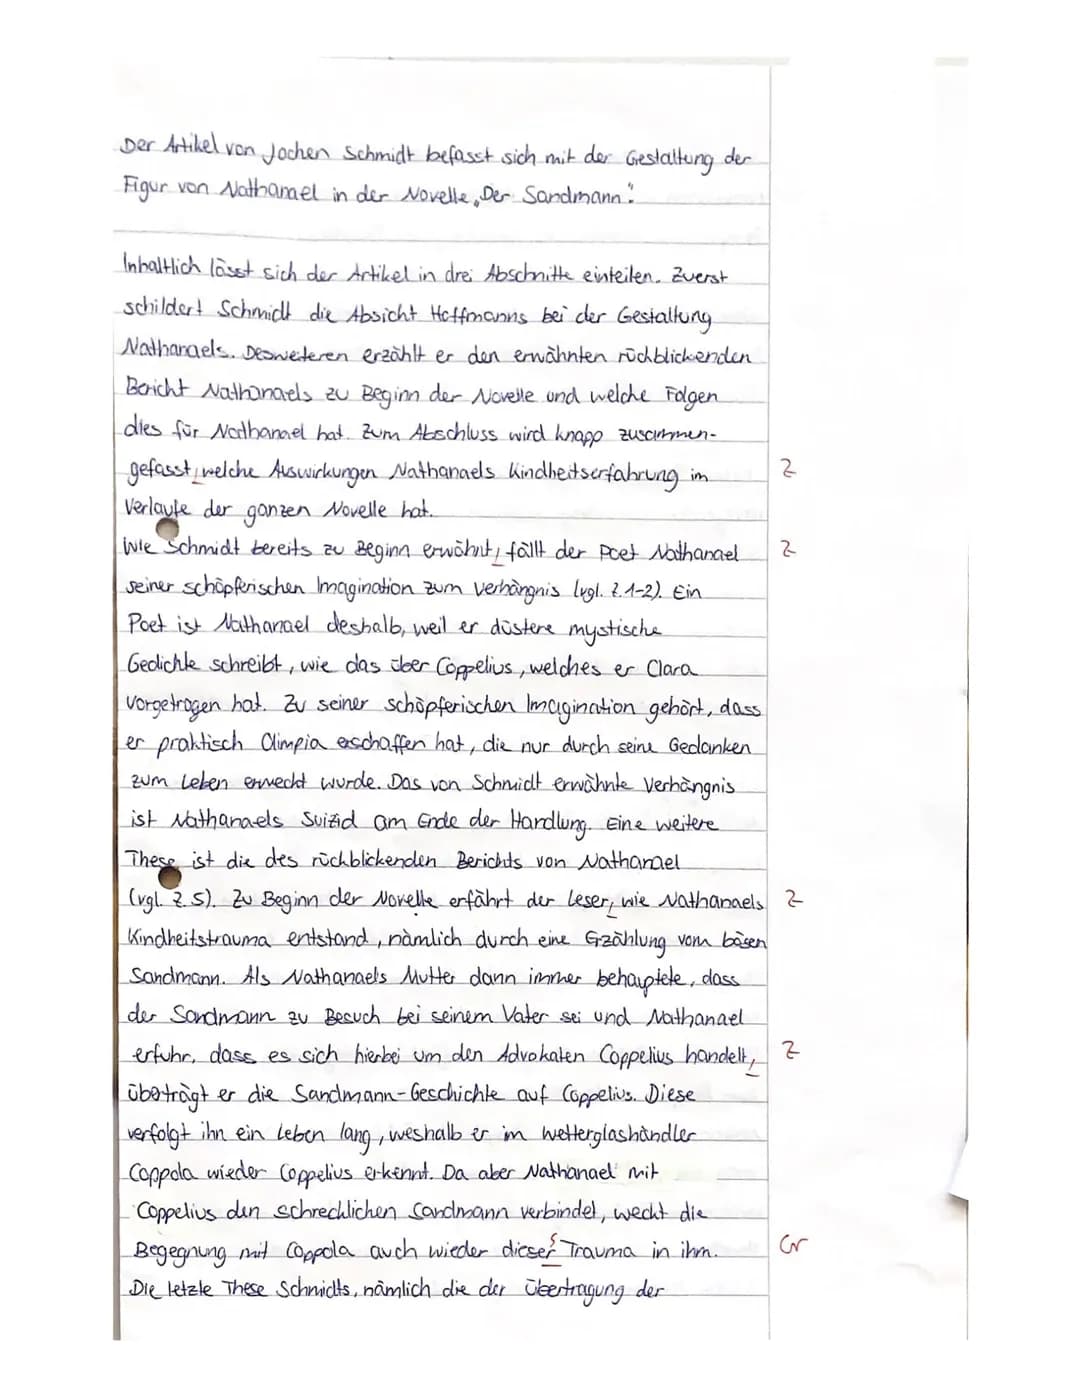 Der Artikel von Jochen Schmidt befasst sich mit der Gestaltung der
Figur von Nathanael in der Novelle „Der Sandmann“.
Inhaltlich lässt sich der Artikel in drei Abschnitte einteilen. Zuerst
schildert Schmidt die Absicht Hoffmanns bei der Gestaltung
Nathanaels. Desweiteren erzählt er den erwähnten rückblickenden
Bericht Nathanaels zu Beginn der Novelle und welche Folgen
dies für Nathanael hat. Zum Abschluss wird knapp zusammen-
gefasst, welche Auswirkungen Nathanaels Kindheitserfahrung im Z
Verlaufe der ganzen Novelle hat.
Wie Schmidt bereits zu Beginn erwähnt, fällt der Poet Nathanael Z
seiner schöpferischen Imagination zum Verhängnis (vgl. Z.1-2). Ein
Poet ist Nathanael deshalb, weil er düstere mystische
Gedichte schreibt, wie das über Coppelius, welches er Clara
vorgetragen hat. Zu seiner schöpferischen Imagination gehört, dass
er praktisch Olimpia erschaffen hat, die nur durch seine Gedanken
zum Leben erweckt wurde. Das von Schmidt erwähnte Verhängnis
ist Nathanaels Suizid am Ende der Handlung. Eine weitere
These ist die des rückblickenden Berichts von Nathanael
(vgl. Z.5). Zu Beginn der Novelle erfährt der Leser, wie Nathanaels Z
Kindheitstrauma entstand, nämlich durch eine Erzählung vom bösen
Sandmann. Als Nathanaels Mutter dann immer behauptete, dass
der Sandmann zu Besuch bei seinem Vater sei und Nathanael
erfuhr, dass es sich hierbei um den Advokaten Coppelius handelt, Z
überträgt er die Sandmann-Geschichte auf Coppelius. Diese
verfolgt ihn ein Leben lang, weshalb er im Wetterglashändler
Coppola wieder Coppelius erkennt. Da aber Nathanael mit
Coppelius den schrecklichen Sandmann verbindet, weckt die
Begegnung mit Coppola auch wieder dieser s Trauma in ihm. Gr
Die letzte These Schmidts, nämlich die der Übertragung der